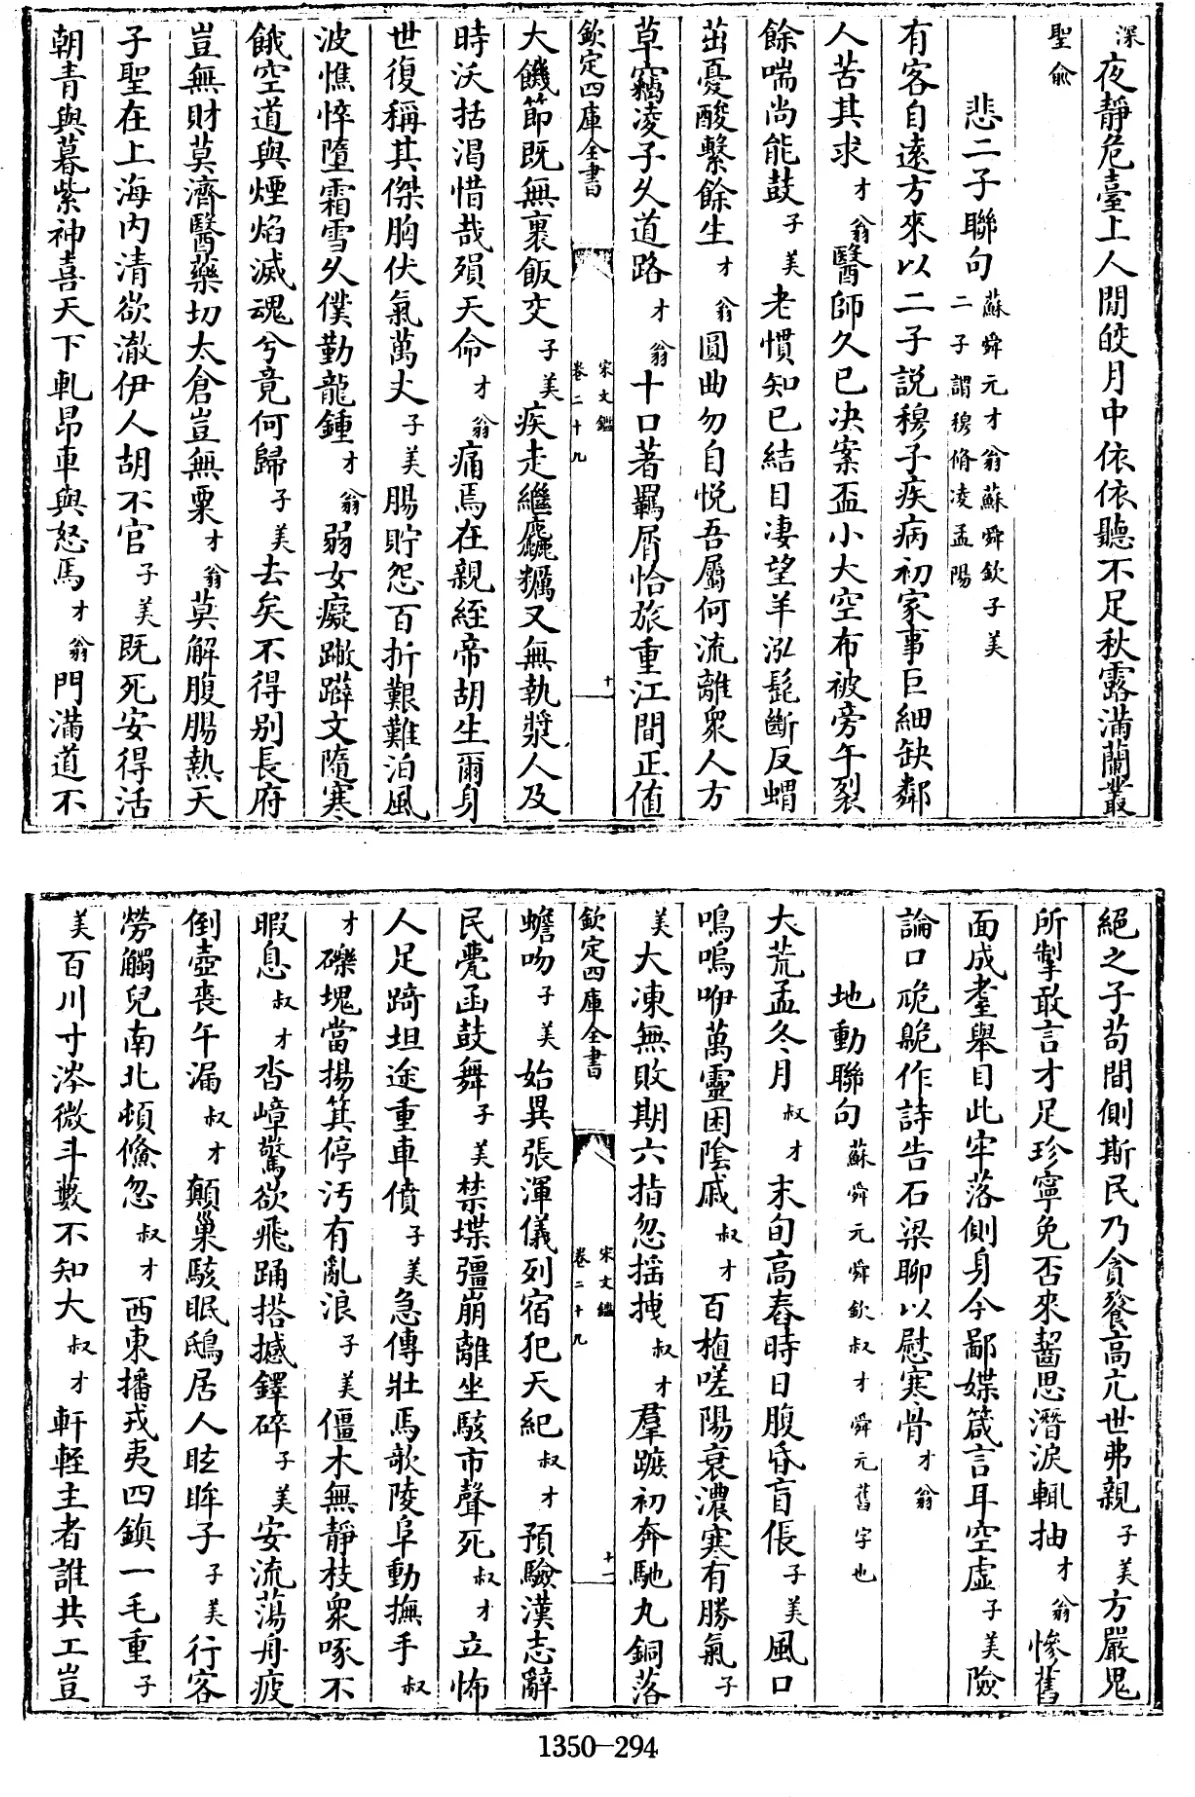 深夜靜危臺上人閒皎月中依依聽不足秋露滿蘭叢
聖俞
悲二子聯句蘇舜元才翁蘇舜欽子美
二子謂穆脩凌孟陽
有客自遠方來以二子説穆子疾病初家事巨細缺鄰
人苦其求才翁醫師久已決案盃小大空布被旁午裂
餘喘尚能鼓子美老慣知已結目凄望羊泓髭斷反蝟
茁憂酸繫餘生才翁圓曲勿自悅吾屬何流離衆人方
草竊凌子久道路才翁十口著羈屑恰旅重江間正值
欽定四庫全書
宋文鑑
卷二十九
十
大饑節既無裹飯交子美疾走繼麤糲又無執漿人及
時沃括渴惜哉殞天命才翁痛焉在親絰帝胡生爾身
世復稱其傑胸伏氣萬丈子美腸貯怨百折艱難泊風
波憔悴墮霜雪久僕勤龍鍾才翁弱女癡蹩躃文隨寒
餓空道與煙焰滅魂兮竟何歸子美去矣不得別長府
豈無財莫濟醫藥切太倉豈無粟才翁莫解腹腸熱天
子聖在上海内清欲澈伊人胡不官子美既死安得活
朝青與暮紫神喜天下軋昂車與怒馬才翁門滿道不
絕之子苟間側斯民乃貪餮高亢世弗親子美方嚴鬼
所掣敢言才足珍寧免否來齧思潛淚輒抽才翁慘舊
面成耋舉目此牢落側身今鄙媟箴言耳空虛子美險
論口卼臲作詩告石梁聊以慰寒骨才翁
地動聯句蘇舜元舜欽叔才舜元舊字也
大荒孟冬月叔才末旬高舂時日腹昏盲倀子美風口
鳴嗚咿萬靈困陰戚叔才百植嗟陽衰濃寒有勝氣子
美大凍無敗期六指忽搖拽叔才羣蹠初奔馳丸銅落
欽定四庫全書
宋文鑑
卷二十九
十一
蟾吻子美始異張渾儀列宿犯天紀叔才預驗漢志辭
民甍函鼓舞子美禁堞彊崩離坐駭市聲死叔才立怖
人足踦坦途重車僨子美急傳壯馬歌陵阜動撫手叔
才礫塊當揚箕停污有亂浪子美僵木無靜枝衆啄不
暇息叔才沓嶂驚欲飛踊搭撼鐸碎子美安流蕩舟疲
倒壺喪午漏叔才顛巢駭眠鴟居人眩眸子子美行客
勞觸兒南北頓儵忽叔才西東播戎夷四鎮一毛重子
美百川寸涔微斗藪不知大叔才軒輊主者誰共工豈
1350-294